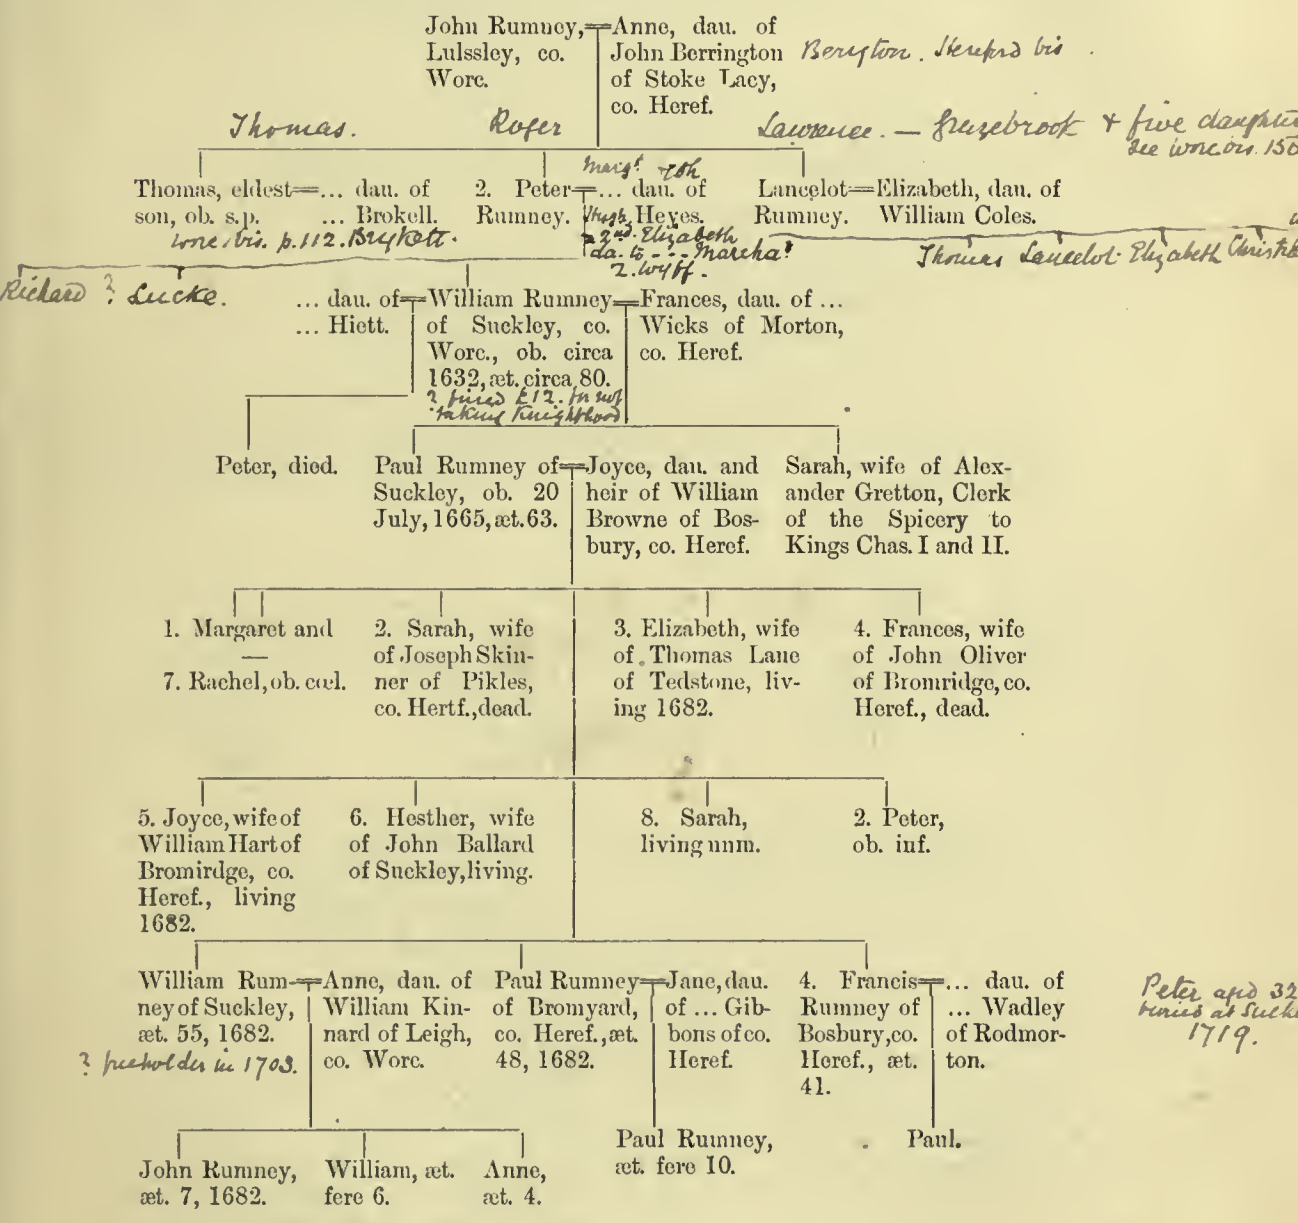 John Rumney,
Lulssley, co.
Worc.
Anne, dau. of
John Berrington
of Stoke Lacy,
co. Heref.
Thomas.
Roger
Lawrence. —
& five
Thomas, eldest
son, ob. s.p.
... dau. of
... Brokell.
p. 112.
2. Peter
Rumney.
... dau. of
Heyes.
Hugh
2nd. Elizabeth
da. to - - -
2. wyff.
Lancelot
Rumney.
Elizabeth, dau. of
William Coles.
Thomas Lancelot Elizabeth
Richard ? Lucke.
... dau. of
... Hiett.
William Rumney
of Suckley, co.
Worc., ob. circa
1632, æt. circa 80.
? fined £12. for not
taking Knighthood
Frances, dau. of ...
Wicks of Morton,
co. Heref.
Peter, died.
Paul Rumney of
Suckley, ob. 20
July, 1665, æt. 63.
Joyce, dau. and
heir of William
Browne of Bos-
bury, co. Heref.
Sarah, wife of Alex-
ander Gretton, Clerk
of the Spicery to
Kings Chas. I and II.
1. Margaret and
—
7. Rachel, ob. cœl.
2. Sarah, wife
of Joseph Skin-
ner of Pikles,
co. Hertf., dead.
3. Elizabeth, wife
of Thomas Lane
of Tedstone, liv-
ing 1682.
4. Frances, wife
of John Oliver
of Bromridge, co.
Heref., dead.
5. Joyce, wife of
William Hart of
Bromirdge, co.
Heref., living
1682.
6. Hesther, wife
of John Ballard
of Suckley, living.
8. Sarah,
living unm.
2. Peter,
ob. inf.
William Rum-
ney of Suckley,
æt. 55, 1682.
? freeholder in 1703.
Anne, dau. of
William Kin-
nard of Leigh,
co. Worc.
Paul Rumney
of Bromyard,
co. Heref., æt.
48, 1682.
Jane, dau.
of ... Gib-
bons of co.
Heref.
4. Francis
Rumney of
Bosbury, co.
Heref., æt.
41.
... dau. of
... Wadley
of Rodmor-
ton.
Peter aged 32
buried at
1719.
John Rumney,
æt. 7, 1682.
William, æt.
fere 6.
Anne,
æt. 4.
Paul Rumney,
æt. fere 10.
Paul.